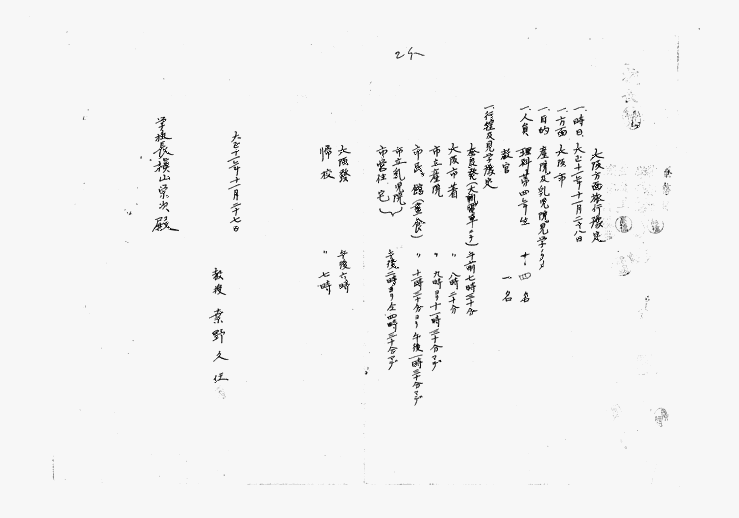 大阪方面旅行豫定
一、時日 大正十二年十一月二十八日
一、方面 大阪市
一、目的 産院及乳児院見学ノタメ
一、人員 理科第四年生 十四名
教官 一名
一、行程及見学豫定
奈良発(大軌電車ニテ) 午前七時二十分
大阪市着 〃 八時二十分
市立産院 〃 九時ヨリ十一時三十分マデ
市民館(昼食) 〃 十一時三十分ヨリ午後一時三十分マデ
市立乳児院
市営住宅 午後二時ヨリ仝四時三十分マデ
大阪發 午後六時
帰校 〃 七時
大正十二年十一月二十七日
学校長横山栄次殿
教授 桑野久任